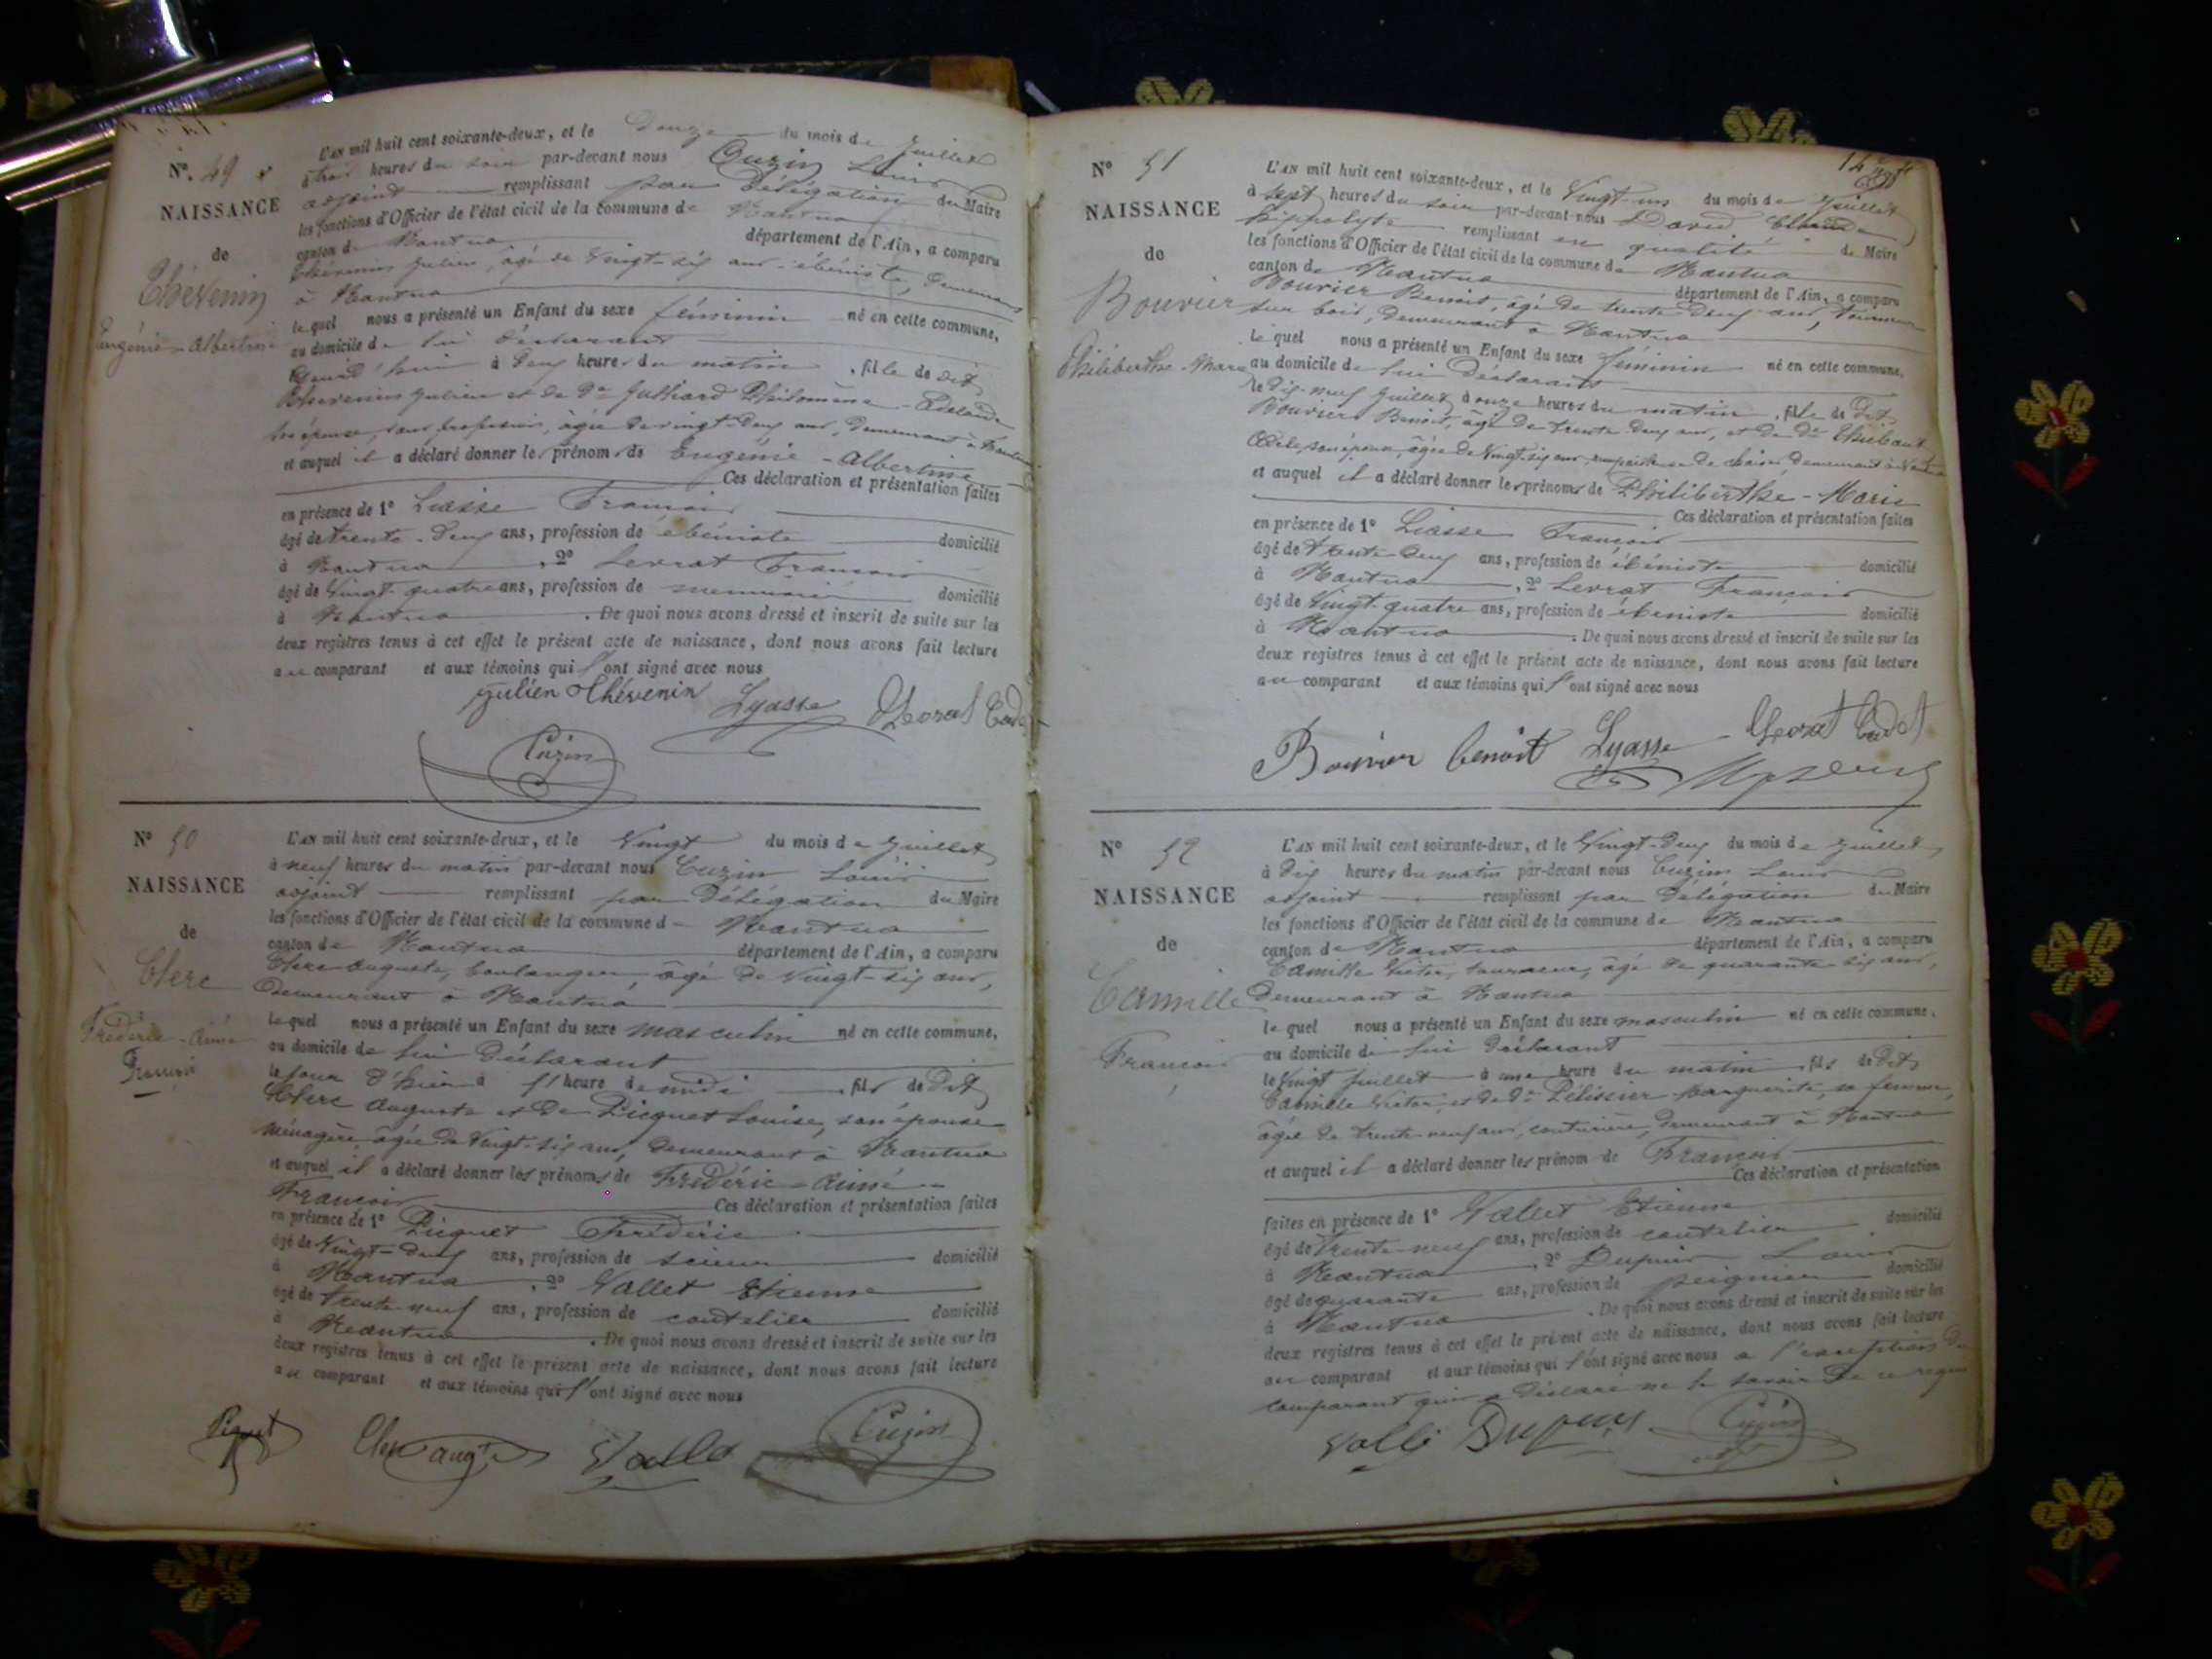 N°. 49
NAISSANCE
de
Thévenin
Eugénie-Albertine
L'AN mil huit cent soixante-deux, et le Douze du mois de Juillet
à trois heures du soir par-devant nous Cuzin Louis
adjoint remplissant par Délégation du Maire
les fonctions d'Officier de l'état civil de la commune de Nantua
canton de Nantua département de l'Ain, a comparu
Thévenin Julien, âgé de Vingt-six ans, ébéniste, demeurant
à Nantua
lequel nous a présenté un Enfant du sexe féminin né en cette commune,
au domicile de lui Déclarant
à Deux heures du matin, fille de dit
Thévenin Julien et de De Julhard Philomène-
son épouse, sans profession, âgée de vingt-deux ans, demeurant à Nantua
et auquel il a déclaré donner les prénoms de Eugénie-Albertine
Ces déclaration et présentation faites
en présence de 1° Liasse François
âgé de trente-deux ans, profession de ébéniste domicilié
à Nantua, 2° Levrat François
âgé de Vingt-quatre ans, profession de menuisier domicilié
à Nantua. De quoi nous avons dressé et inscrit de suite sur les
deux registres tenus à cet effet le présent acte de naissance, dont nous avons fait lecture
au comparant et aux témoins qui l'ont signé avec nous
Julien Thévenin Lyasse Levrat Cadet
Cuzin
N° 50
NAISSANCE
de
Clerc
Frédéric-Aimé
François
L'AN mil huit cent soixante-deux, et le Vingt du mois de Juillet
à neuf heures du matin par-devant nous Cuzin Louis
adjoint remplissant par Délégation du Maire
les fonctions d'Officier de l'état civil de la commune de Nantua
canton de Nantua département de l'Ain, a comparu
Clerc Auguste, boulanger, âgé de Vingt-six ans,
Demeurant à Nantua
lequel nous a présenté un Enfant du sexe masculin né en cette commune,
au domicile de lui Déclarant
le jour d'hier à l'heure de midi, fils de Dit
Clerc Auguste et de Picquet Louise, son épouse
ménagère, âgée de Vingt-six ans, demeurant à Nantua
et auquel il a déclaré donner les prénoms de Frédéric-Aimé-
François Ces déclaration et présentation faites
en présence de 1° Picquet Frédéric
âgé de Vingt-deux ans, profession de scieur domicilié
à Nantua, 2° Vallet Etienne
âgé de trente-neuf ans, profession de coutelier domicilié
à Nantua. De quoi nous avons dressé et inscrit de suite sur les
deux registres tenus à cet effet le présent acte de naissance, dont nous avons fait lecture
au comparant et aux témoins qui l'ont signé avec nous
Piquet Clerc augte Vallet Cuzin
N° 51
NAISSANCE
de
Bouvier
Philiberthe-Marie
L'AN mil huit cent soixante-deux, et le Vingt-un du mois de Juillet
à sept heures du soir par-devant nous David Claude
hippolyte remplissant en qualité de Maire
les fonctions d'Officier de l'état civil de la commune de Nantua
canton de Nantua département de l'Ain, a comparu
Bouvier Benoit, âgé de trente-deux ans, tourneur
sur bois, demeurant à Nantua
lequel nous a présenté un Enfant du sexe féminin né en cette commune,
au domicile de lui Déclarant
le dix-neuf Juillet à onze heures du matin, fille de Dit
Bouvier Benoit, âgé de trente-deux ans, et de De Thiébaut
son épouse, âgée de Vingt-six ans, rempailleuse de chaises, demeurant à Nantua
et auquel il a déclaré donner les prénoms de Philiberthe-Marie
Ces déclaration et présentation faites
en présence de 1° Liasse François
âgé de trente-deux ans, profession de ébéniste domicilié
à Nantua, 2° Levrat François
âgé de Vingt-quatre ans, profession de ébéniste domicilié
à Nantua. De quoi nous avons dressé et inscrit de suite sur les
deux registres tenus à cet effet le présent acte de naissance, dont nous avons fait lecture
au comparant et aux témoins qui l'ont signé avec nous
Bouvier benoit Lyasse Levrat Cadet
N° 52
NAISSANCE
de
Camille
François
L'AN mil huit cent soixante-deux, et le Vingt-deux du mois de Juillet
à Dix heures du matin par-devant nous Cuzin Louis
adjoint remplissant par Délégation du Maire
les fonctions d'Officier de l'état civil de la commune de Nantua
canton de Nantua département de l'Ain, a comparu
Camille Victor, tourneur, âgé de quarante-six ans,
demeurant à Nantua
lequel nous a présenté un Enfant du sexe masculin né en cette commune,
au domicile de lui déclarant
le Vingt Juillet à une heure du matin, fils de Dit
Camille Victor, et de De Pélissier Marguerite, sa femme,
âgée de trente-neuf ans, couturière, demeurant à Nantua
et auquel il a déclaré donner les prénom de François
Ces déclaration et présentation
faites en présence de 1° Vallet Etienne
âgé de trente-neuf ans, profession de coutelier domicilié
à Nantua, 2° Dupuis Louis
âgé de quarante ans, profession de peignier domicilié
à Nantua. De quoi nous avons dressé et inscrit de suite sur les
deux registres tenus à cet effet le présent acte de naissance, dont nous avons fait lecture
au comparant et aux témoins qui l'ont signé avec nous à l'exception du
comparant qui a déclaré ne le savoir de ce requis
Vallet Dupuis Cuzin